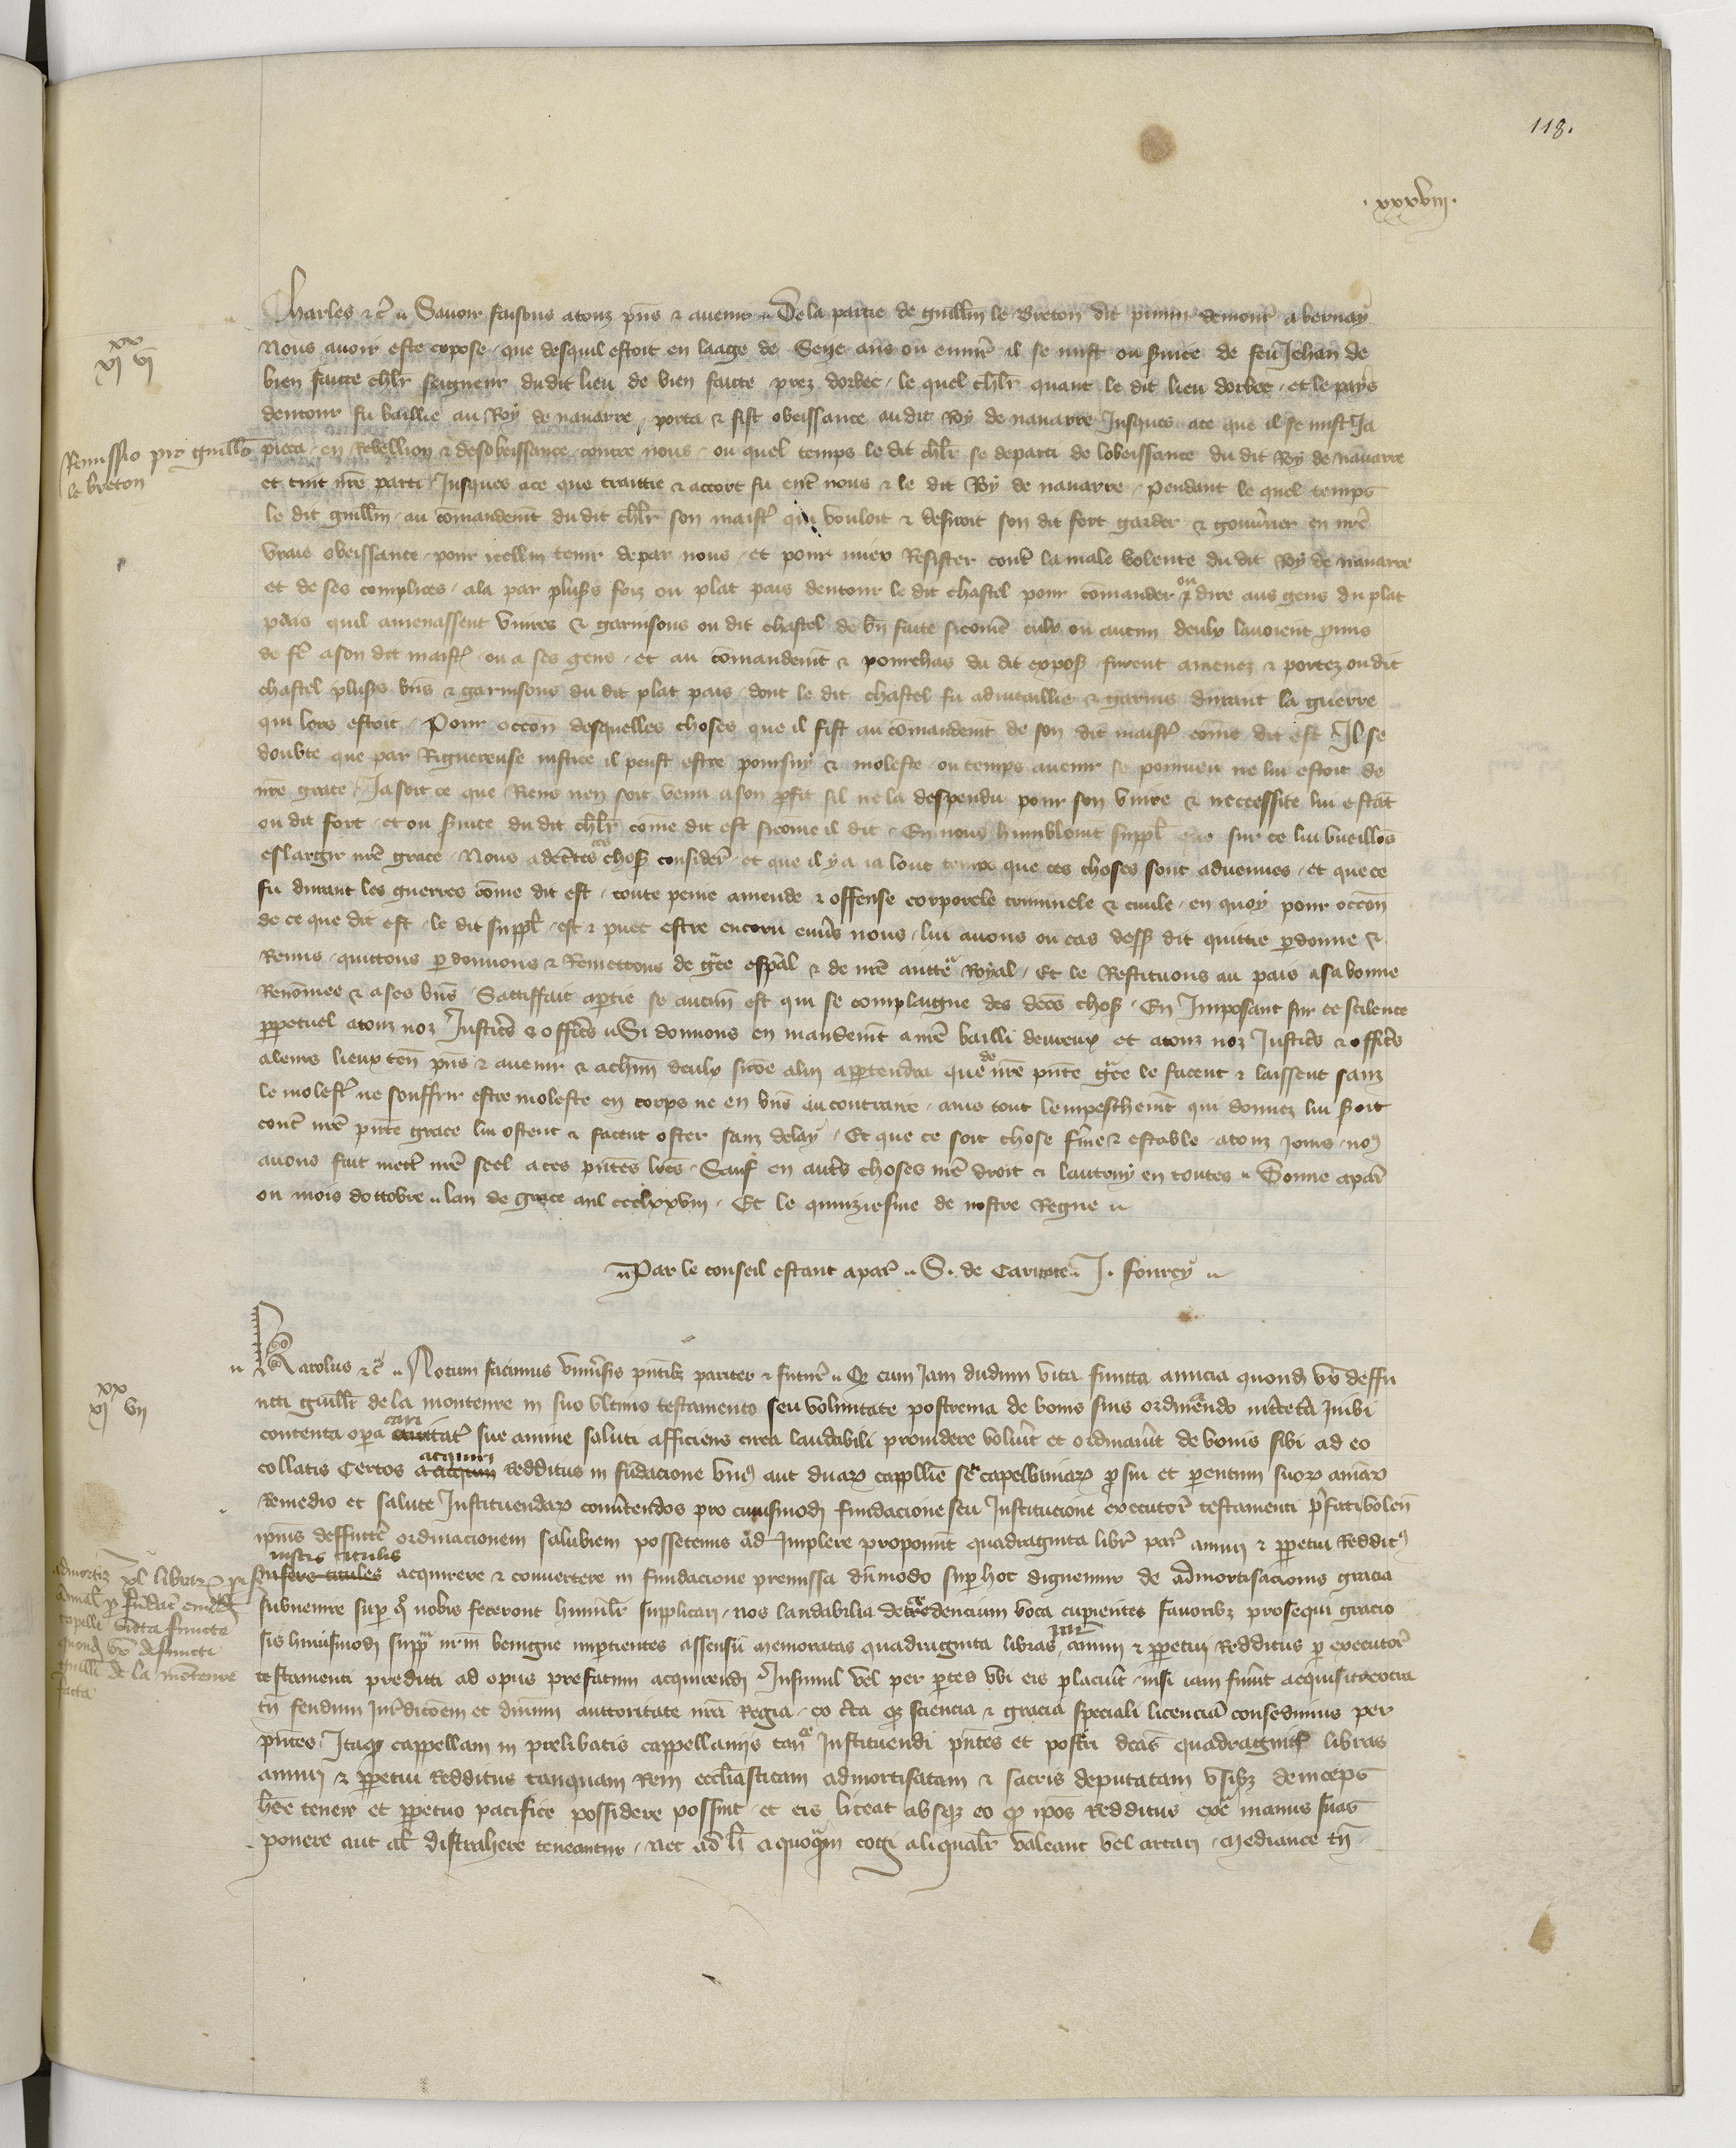 118.
. xxxviii .
Charles &c̃ Savoir faisons a touz p̃ns & avenir De la partie de guill̃m le Breton dit pinin demour̃ a bernay
xx
vi vi
Nous avoir este expose que desquil estoit en laage de Seze ans ou envir̃ il se mist ou s̃vice de feu Jehan de
bien faitte ch̃lr seigneur du dit lieu de bien faitte prez dorbec le quel ch̃lr quant le dit lieu dorbec et le pays
dentour fu baillie au Roy de navarre porta & fist obeissance au dit Roy de navarre Jusques ace que il se mist Ja
Remissio pro guill̃o
le breton
pieca en Rebellion & desobeissance contre nous ou quel temps le dit ch̃lr se departi de lobeissance du dit Roy de navarre
et tint nr̃e parti Jusques ace que traittie & accort fu ent̃ nous & le dit Roy de navarre Pendant le quel temps
le dit guill̃m au com̃andem̃t du dit ch̃lr son maist̃ qui vouloit & desiroit son dit fort garder & gouv̾ner en nr̃e
vraie obeissance pour icellui tenir depar nous et pour miex Resister cont̃ la male volente du dit Roy de navarre
et de ses complices ala par plus̃s foiz ou plat pais dentour le dit chastel pour com̃ander ou dire aus gens du plat
pais quil amenassent vivres & garnisons ou dit chastel de bñ faite sicom̃e eulx ou aucun deulx lavoient p̃mis
de fẽ a son dit maist̃ ou a ses gens et au com̃andem̃t & pourchas du dit expoß furent amenez & portez ou dit
chastel plus̃s bñs & garnisons du dit plat pais dont le dit chastel fu advitaillie & garnis durant la guerre
qui lors estoit Pour occõn desquelles choses que il fist au com̃andem̃t de son dit maist̃ com̃e dit est Il se
doubte que par Riguereuse justice il peust estre poursuy & moleste ou temps avenir se pourveu ne lui estoit de
nr̃e grace Ja soit ce que Riens nen soit venu a son p̃fit sil ne la despendu pour son vivre & neccessite lui estãt
ou dit fort et ou s̃vice du dit ch̃lr com̃e dit est sicom̃e il dit En nous humblem̃t suppl̃ que sur ce lui vueillõs
eslargir nr̃e grace Nous adec̃tes ces choß consider̃ et que il y a ia lonc temps que ces choses sont advenues et que ce
fu durant les guerres com̃e dit est toute peine amende & offense corporele criminele & civile en quoy pour occõn
de ce que dit est le dit suppl̃ est & puet estre encoru env̾s nous lui avons ou cas desß dit quittie p̱donne &
Remis quittons p̱donnons & Remettons de gr̃ce esp̃al & de nr̃e auttẽ Royal Et le Restituons au pais a sa bonne
Renom̃ee & a ses bñs Sattiffait ap̱tie se aucũn est qui se complaigne des dc̃es choß En Imposant sur ce scilence
p̱petuel a touz noz Justic̃s & offic̃s Si donnons en mandem̃t a nr̃e bailli devreux et a touz noz Justic̃s & offic̃s
a leurs lieux teñ p̃ns & avenir & a ch̃un deulx sicõe a lui app̱tendra que de nr̃e p̃nte gr̃ce le facent & laissent sanz
le molest̃ ne souffrir estre moleste en corps ne en bñs au contraire ains tout lempeschem̃t qui donnez lui s̃oit
cont̃ nr̃e p̃nte grace lui ostent & facent oster sanz delay Et que ce soit chose fm̃e & estable a touz jours noꝰ
avons fait mettr̃ nr̃e seel a ces p̃ntes lr̃es Sauf en autr̃s choses nr̃e droit & lautruy en toutes Donne a par̃
ou mois dottobre lan de grace mil ccclxxviii Et le quinziesme de nostre Regne
Par le conseil estant a par̃ S. de Caritate J. fourcy
Karolus &c̃ Notum facimus univ̾sis p̃ntibȝ pariter & futur̃ Qȝ cum Jam dudum vita functa amicia quond̃ ux̃ deffu
xx
xi vii
ncti guill̃i de la montenre in suo ultimo testamento seu voluntate postrema de bonis suis ordinando inc̃tet̃a Inibi
contenta op̱a caritat̃ cari sue anime saluti afficiens circa laudabili providere voluit et ordinavit de bonis sibi ad eo
collatis Certos acquiri Redditus in fũdacione uniꝰ aut duaȝ cappell̃ie seu capellaniaȝ ꝓ sui et parentum suoȝ aniãȝ
Remedio et salute Instituendaȝ conv̾tendos pro cuiusmod̃ fundacione seu Institucione executor̃ testamenti p̃fati volen̄
ip̃ius deffuncte ordinacionem salubrem possetenus ad Implere proponũt quadraginta libr̃ par̃ annui & p̱petui Redditꝰ
justis titulis
acquirere & convertere in fundacione premissa dũmodo sup̱ hoc dignemur de admortisacionis gracia
admortiz̃ xl librar̃ pr̃
annual̃ ꝓ fundac̃ cuiusd̃
capelle vita functe
quond̃ ux̃ defuncti
guill̃i de la mõtenre
facta
subvenire sup̱ qͦ nobis feceront humilr̃ supplicari nos laudabilia decedencium vota cupientes favoribȝ prosequi gracio
sis huiusmod̃ suppm nr̃m benigne imp̱cientes assensũ memoratas quadraginta libras par̃ annui & p̱petui Redditus p̱ executor̃
testamenti preditti ad opus prefatum acquirend̃ Insimul vel per p̱tes ubi eis placuĩt nisi iam fu̾int acquisite extra
tñ feudum Ju̾dicõem et d̃nium auttoritate nr̃a Regia ex c̃ta qȝ sciencia & gracia speciali licenciã consedimus per
p̃ntes Itaqȝ cappellani in prelibatis cappellaniis tanqȝ Instituendi p̃ntes et post̃i dc̃as quadragint̃ libras
annui & p̱petui Redditus tanquam Rem eccl̃iasticam admortisatam & sacris deputatam usibȝ deinceps
hr̃e tenere et p̱petuo pacifice possidere possint et eis liceat absqȝ eo qȝ ip̃os Redditus ext̃ manus suas
ponere aut al̃ distrahere teneantur nec ad h̃ a quoqȝm cogi aliqualr̃ valeant vel artari mediante tñ